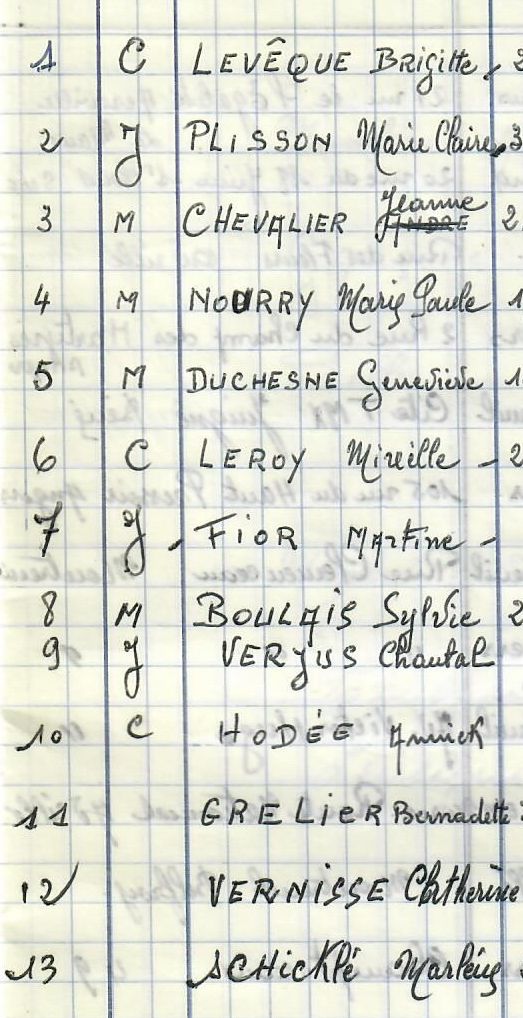 1 C LEVÊQUE Brigitte - 2
2 J PLISSON Marie Claire 3
Jeanne
3 M CHEVALIER ANDRE 2
4 M NOURRY Marie Paule 1
5 M DUCHESNE Geneviève 1
6 C LEROY Mireille - 2
7 J - FIOR MARTine -
8 M BOULAIS Sylvie 2
9 J VERJUS Chantal
10 C HODÉE Annick
11 GRELIER Bernadette
12 VERNISSE Catherine
13 SCHICKLÉ